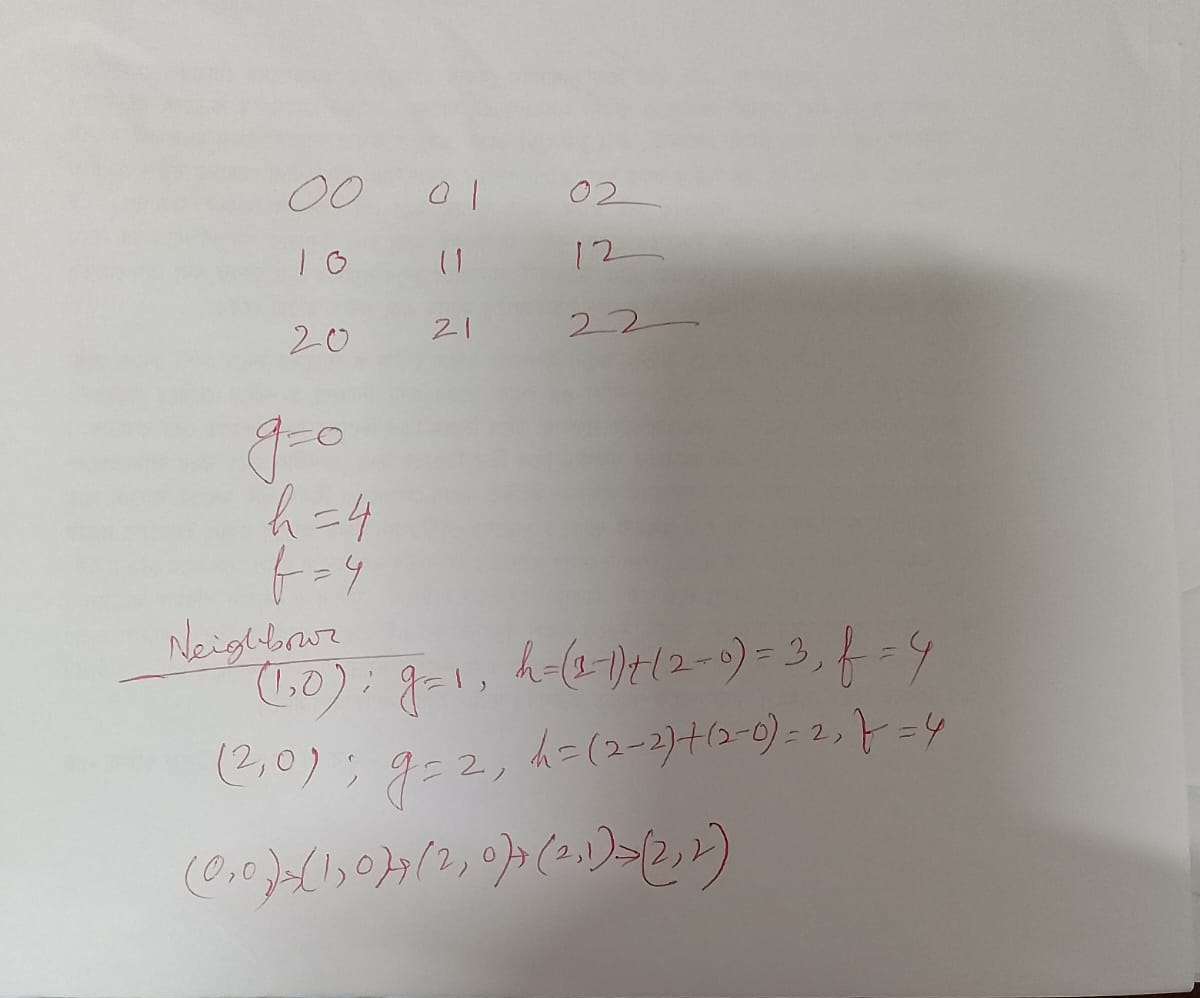 00 01 02
10 11 12
20 21 22
g=0
h=4
f=4
Neighbour
(1,0); g=1, h=(2-1)+(2-0)=3, f=4
(2,0); g=2, h=(2-2)+(2-0)=2, f=4
(0,0)→(1,0)→(2,0)→(2,1)→(2,2)